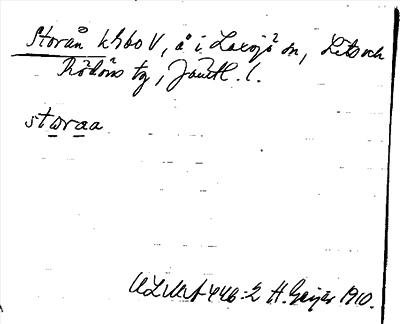 Storån k 360 V, å i Laxsjö sn, Lits och
Rödöns tg, Jämtl. l.
storaa
ULMA 446:2 H. Geijer 1910.